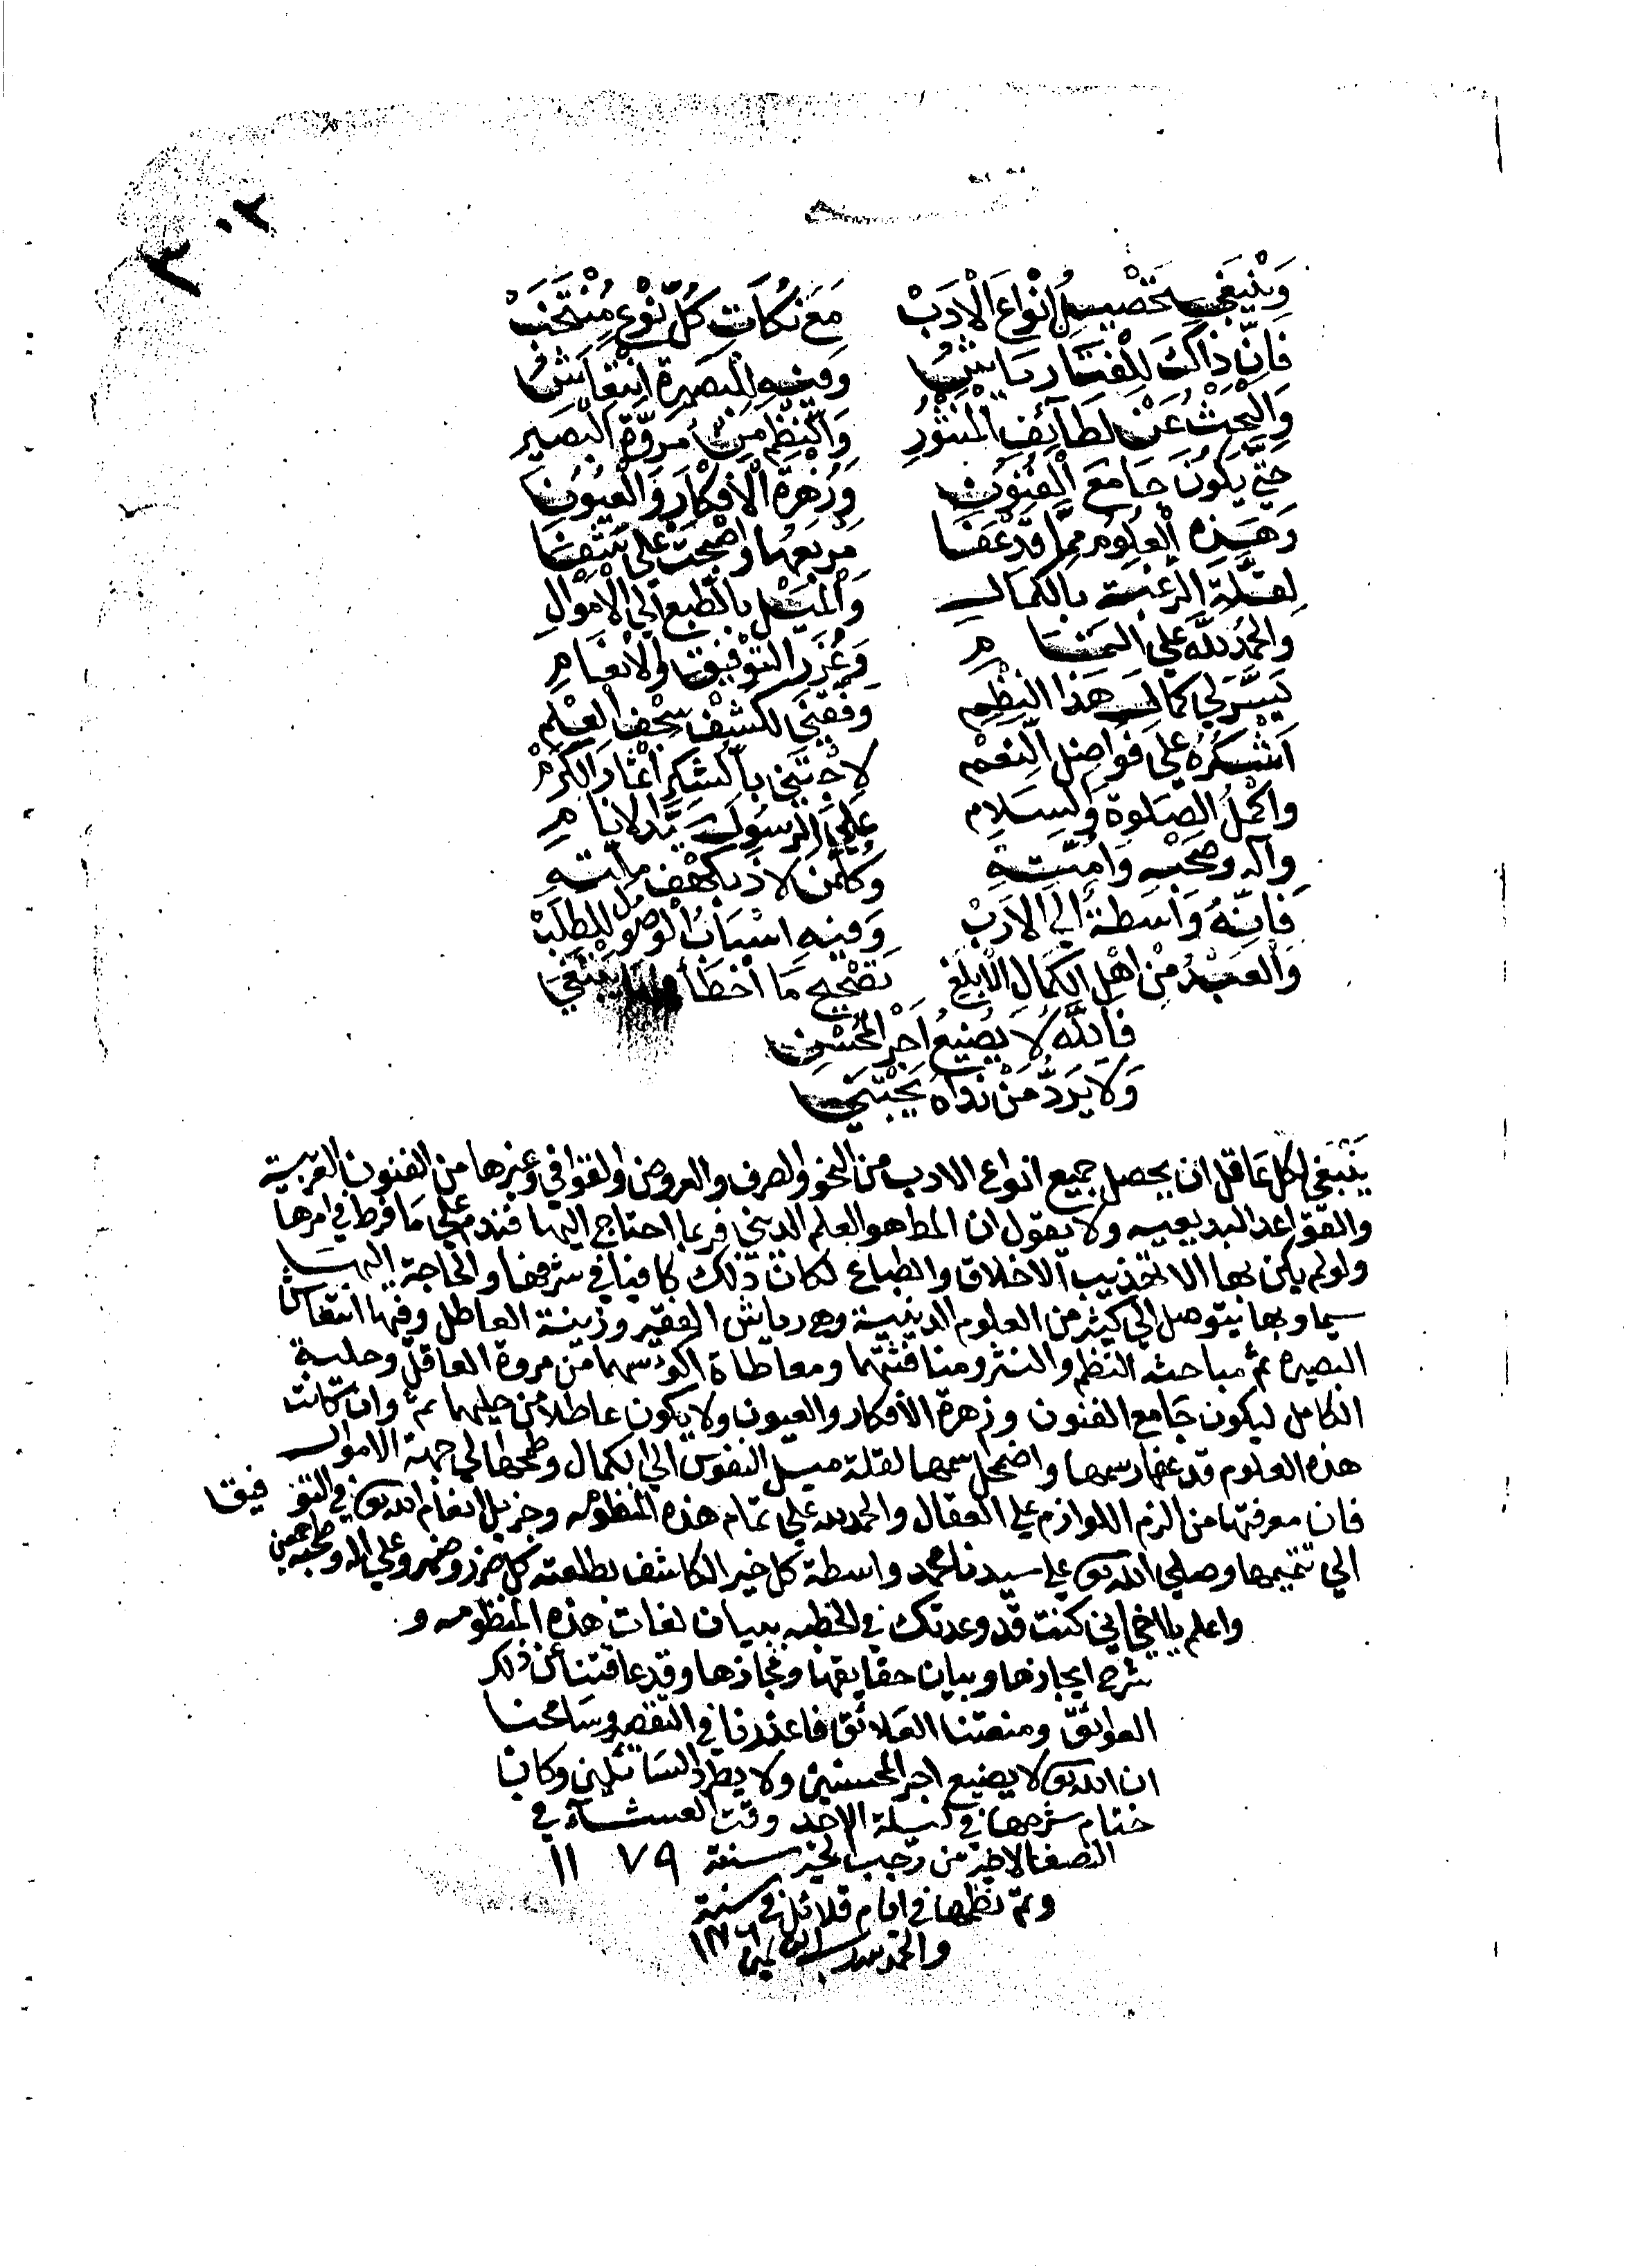 ٣٠٢
وَيَنْبَغِي تَحْصِيلُ اَنْوَاعِ الْاَدَبْ مَعَ نُكَاتِ كُلِّ نَوْعٍ مُنْتَخَبْ
فَاِنَّ ذَاكَ لِلْفَتَى رِيَاشُ وَفِيهِ لِلْبَصِيرَةِ انْتِعَاشُ
وَالْبَحْثُ عَنْ لَطَآئِفِ الْمَنْثُورِ وَالنَّظْمِ مِنْ مُرُوَّةِ الْبَصِيرِ
حَتَّى يَكُونَ جَامِعَ الْفُنُونِ وَزُهْرَةَ الْاَفْكَارِ وَالْعُيُونِ
وَهَذِهِ الْعُلُومُ مِمَّا قَدْ عَفَا مَرْبَعُهَا وَاَصْبَحَتْ عَلَى شَفَا
لِقِلَّةِ الرَّغْبَةِ بِالْكَمَالِ وَالْمَيْلِ بِالطَّبْعِ اِلَى الْاَمْوَالِ
وَالْحَمْدُ لِلَّهِ عَلَى التَّمَامِ وَغُزْرِ التَّوْفِيقِ وَالْاِنْعَامِ
يَسَّرَ لِي كَمَالَ هَذَا النَّظْمِ وَفَّقَنِي لِكَشْفِ سُجْفِ الْعِلْمِ
اَشْكُرُهُ عَلَى فَوَاضِلِ النِّعَمْ لِاَجْتَنِي بِالشُّكْرِ اَثْمَارَ الْكَرَمْ
وَاَكْمَلُ الصَّلٰوةِ وَالسَّلَامِ عَلَى الرَّسُولِ سَيِّدِ الْاَنَامِ
وَآلِهِ وَصَحْبِهِ وَاُمَّتِهِ وَكُلِّ مَنْ لَاذَ بِكَهْفِ مِلَّتِهِ
فَاِنَّهُ وَاسِطَةٌ اِلَى الْاَدَبْ وَفِيهِ اَسْبَابُ الْوُصُولِ لِلطَّلَبْ
وَالْعَبْدُ مِنْ اَهْلِ الْكَمَالِ الْاَبْلَغِ تَصْحِيحَ مَا اَخْطَأَ يَبْتَغِي
فَاللَّهُ لَا يُضِيعُ اَجْرَ الْمُحْسِنِ
وَلَا يَرُدُّ مَنْ نَدَاهُ يَجْتَنِي
يَنْبَغي لكل عَاقل ان يحصل جميع انواع الادب من النحو والصرف والعروض والقوافي وغيرها من الفنون العربيية
والقواعد البديعيه ولا يقول ان المط هو العلم الديني فربما احتاج اليها فندم على مَا فرط في امرها
ولو لم يكن بها الا تهذيب الاخلاق والطباع لكان ذلك كافيا في شرفها والحاجة اليها
سيما وبها يتوصل الى كثير من العلوم الدينية وهي رياش الفقير وزينة العاطل وفيها انتعاش
البصيره ثم مباحثه النظم والنثر ومنافثتها ومعاطاة اكؤسهما من مروة العاقل وحلية
الكامل ليكون جَامع الفنون وزهرة الافكار والعيون ولا يكون عاطلا من حليها ثم وان كانت
هذه العلوم قد عفا رسمها واضمحل اسمها لقلة ميل النفوس الى الكمال وطمحها الى جهة الاموال
فان معرفتها من الزم اللوازم على العقال والحمد لله على تمام هذه المنظومه وجزيل انعام الله تعالى في التوفيق
الى تتميمها وصلى الله تعالى على سيدنا محمد واسطة كل خير الكاشف بطلعته كل ضرر وضير وعلى اله وصحبه اجمعين
واعلم يا اخي اني كنت قد وعدتك في الخطبه ببيان لغات هذه المنظومه و
شرح ايجازها وبيان حقايقها ومجازها وقد عاقتنا عن ذلك
العوائق ومنعتنا العلائق فاعذرنا في التقصير وسَامحنا
ان الله تعالى لا يضيع اجر المحسنين ولا يطرد السَائلين وكان
ختام شرحها في ليلة الاحد وقت العشآء في
النصف الاخير من رجب الخير سنة ١١٧٩
وتم نظمها في ايام قلائل في سنة
١١٧٦ والحمد لله رب العالمين